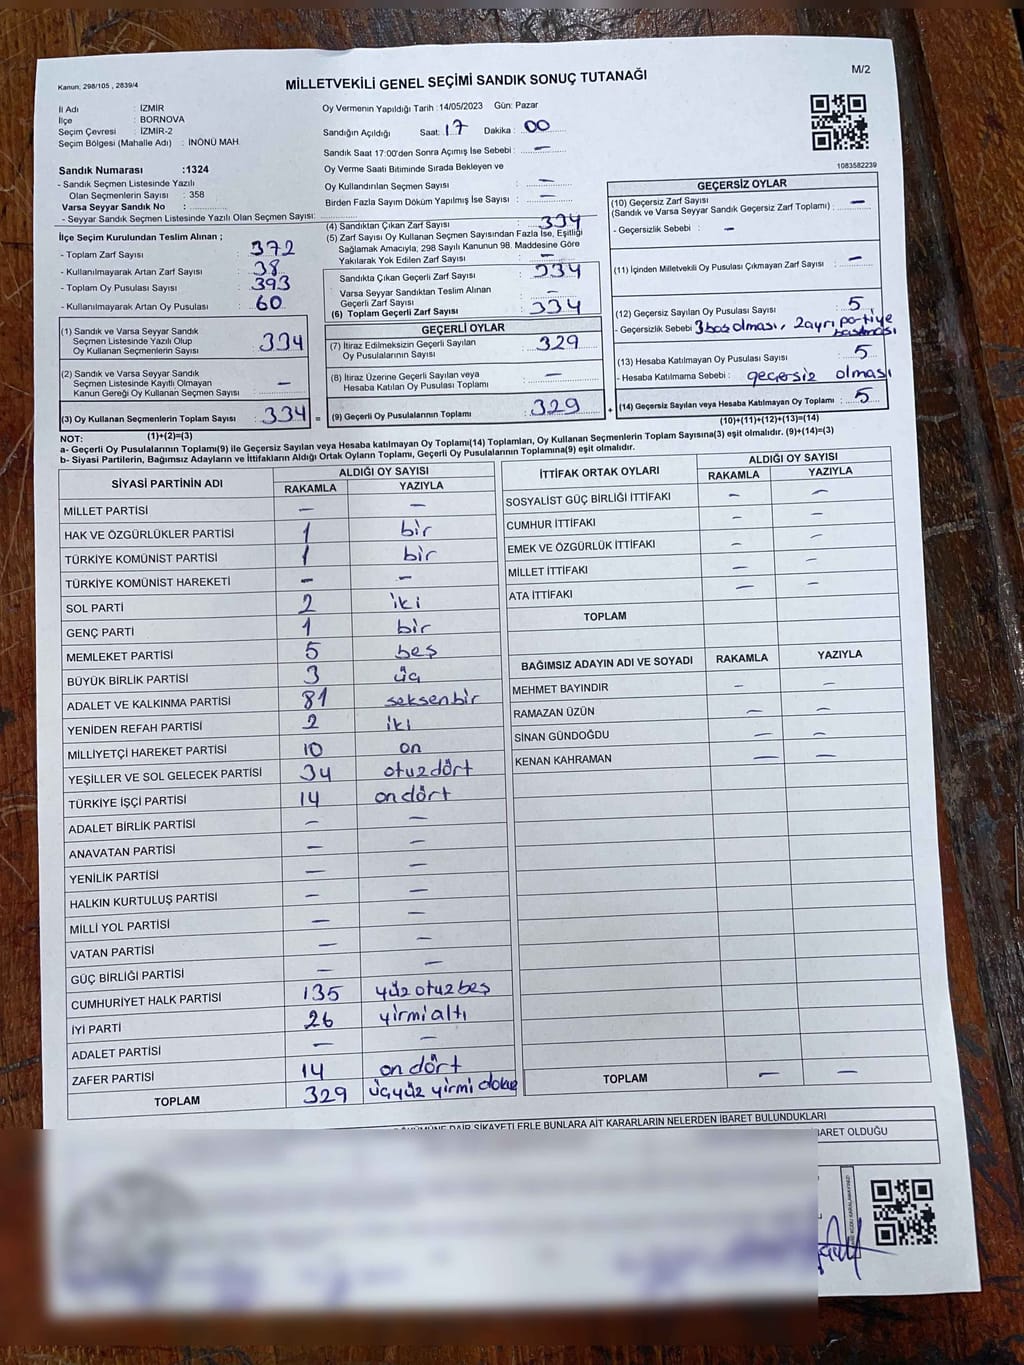 Kanun; 298/105 , 2839/4
MİLLETVEKİLİ GENEL SEÇİMİ SANDIK SONUÇ TUTANAĞI
M/2
İl Adı : İZMİR
İlçe : BORNOVA
Seçim Çevresi : İZMİR-2
Seçim Bölgesi (Mahalle Adı) : İNÖNÜ MAH.
Oy Vermenin Yapıldığı Tarih :14/05/2023 Gün: Pazar
Sandığın Açıldığı Saat: 17 Dakika : 00
Sandık Saat 17:00'den Sonra Açımış İse Sebebi : —
Oy Verme Saati Bitiminde Sırada Bekleyen ve
Oy Kullandırılan Seçmen Sayısı : —
Birden Fazla Sayım Döküm Yapılmış İse Sayısı : —
1083582239
Sandık Numarası :1324
- Sandık Seçmen Listesinde Yazılı
Olan Seçmenlerin Sayısı : 358
Varsa Seyyar Sandık No :
- Seyyar Sandık Seçmen Listesinde Yazılı Olan Seçmen Sayısı:
İlçe Seçim Kurulundan Teslim Alınan ;
- Toplam Zarf Sayısı : 372
- Kullanılmayarak Artan Zarf Sayısı : 38
- Toplam Oy Pusulası Sayısı : 393
- Kullanılmayarak Artan Oy Pusulası : 60
(1) Sandık ve Varsa Seyyar Sandık
Seçmen Listesinde Yazılı Olup
Oy Kullanan Seçmenlerin Sayısı : 334
(2) Sandık ve Varsa Seyyar Sandık
Seçmen Listesinde Kayıtlı Olmayan
Kanun Gereği Oy Kullanan Seçmen Sayısı : —
(3) Oy Kullanan Seçmenlerin Toplam Sayısı : 334 =
(1)+(2)=(3)
(4) Sandıktan Çıkan Zarf Sayısı : 334
(5) Zarf Sayısı Oy Kullanan Seçmen Sayısından Fazla İse, Eşitliği
Sağlamak Amacıyla; 298 Sayılı Kanunun 98. Maddesine Göre
Yakılarak Yok Edilen Zarf Sayısı : —
Sandıkta Çıkan Geçerli Zarf Sayısı : 334
Varsa Seyyar Sandıktan Teslim Alınan
Geçerli Zarf Sayısı : —
(6) Toplam Geçerli Zarf Sayısı : 334
GEÇERLİ OYLAR
(7) İtiraz Edilmeksizin Geçerli Sayılan
Oy Pusulalarının Sayısı : 329
(8) İtiraz Üzerine Geçerli Sayılan veya
Hesaba Katılan Oy Pusulası Toplamı : —
(9) Geçerli Oy Pusulalarının Toplamı : 329 +
GEÇERSİZ OYLAR
(10) Geçersiz Zarf Sayısı
(Sandık ve Varsa Seyyar Sandık Geçersiz Zarf Toplamı) : —
- Geçersizlik Sebebi : —
(11) İçinden Milletvekili Oy Pusulası Çıkmayan Zarf Sayısı : —
(12) Geçersiz Sayılan Oy Pusulası Sayısı : 5
- Geçersizlik Sebebi : 3 boş olması, 2 ayrı partiye
basılması
(13) Hesaba Katılmayan Oy Pusulası Sayısı : 5
- Hesaba Katılmama Sebebi : geçersiz olması
(14) Geçersiz Sayılan veya Hesaba Katılmayan Oy Toplamı : 5
(10)+(11)+(12)+(13)=(14)
NOT:
a- Geçerli Oy Pusulalarının Toplamı(9) ile Geçersiz Sayılan veya Hesaba katılmayan Oy Toplamı(14) Toplamları, Oy Kullanan Seçmenlerin Toplam Sayısına(3) eşit olmalıdır. (9)+(14)=(3)
b- Siyasi Partilerin, Bağımsız Adayların ve İttifakların Aldığı Ortak Oyların Toplamı, Geçerli Oy Pusulalarının Toplamına(9) eşit olmalıdır.
SİYASİ PARTİNİN ADI ALDIĞI OY SAYISI
RAKAMLA YAZIYLA
MİLLET PARTİSİ — —
HAK VE ÖZGÜRLÜKLER PARTİSİ 1 bir
TÜRKİYE KOMÜNİST PARTİSİ 1 bir
TÜRKİYE KOMÜNİST HAREKETİ — —
SOL PARTİ 2 iki
GENÇ PARTİ 1 bir
MEMLEKET PARTİSİ 5 beş
BÜYÜK BİRLİK PARTİSİ 3 üç
ADALET VE KALKINMA PARTİSİ 81 seksenbir
YENİDEN REFAH PARTİSİ 2 iki
MİLLİYETÇİ HAREKET PARTİSİ 10 on
YEŞİLLER VE SOL GELECEK PARTİSİ 34 otuzdört
TÜRKİYE İŞÇİ PARTİSİ 14 ondört
ADALET BİRLİK PARTİSİ — —
ANAVATAN PARTİSİ — —
YENİLİK PARTİSİ — —
HALKIN KURTULUŞ PARTİSİ — —
MİLLİ YOL PARTİSİ — —
VATAN PARTİSİ — —
GÜÇ BİRLİĞİ PARTİSİ — —
CUMHURİYET HALK PARTİSİ 135 yüz otuz beş
İYİ PARTİ 26 yirmialtı
ADALET PARTİSİ — —
ZAFER PARTİSİ 14 on dört
TOPLAM 329 üçyüz yirmi dokuz
İTTİFAK ORTAK OYLARI ALDIĞI OY SAYISI
RAKAMLA YAZIYLA
SOSYALİST GÜÇ BİRLİĞİ İTTİFAKI — —
CUMHUR İTTİFAKI — —
EMEK VE ÖZGÜRLÜK İTTİFAKI — —
MİLLET İTTİFAKI — —
ATA İTTİFAKI — —
TOPLAM
BAĞIMSIZ ADAYIN ADI VE SOYADI RAKAMLA YAZIYLA
MEHMET BAYINDIR — —
RAMAZAN ÜZÜN — —
SİNAN GÜNDOĞDU — —
KENAN KAHRAMAN — —
TOPLAM — —
DAİR ŞİKAYETLERLE BUNLARA AİT KARARLARIN NELERDEN İBARET BULUNDUKLARI
OLDUĞU